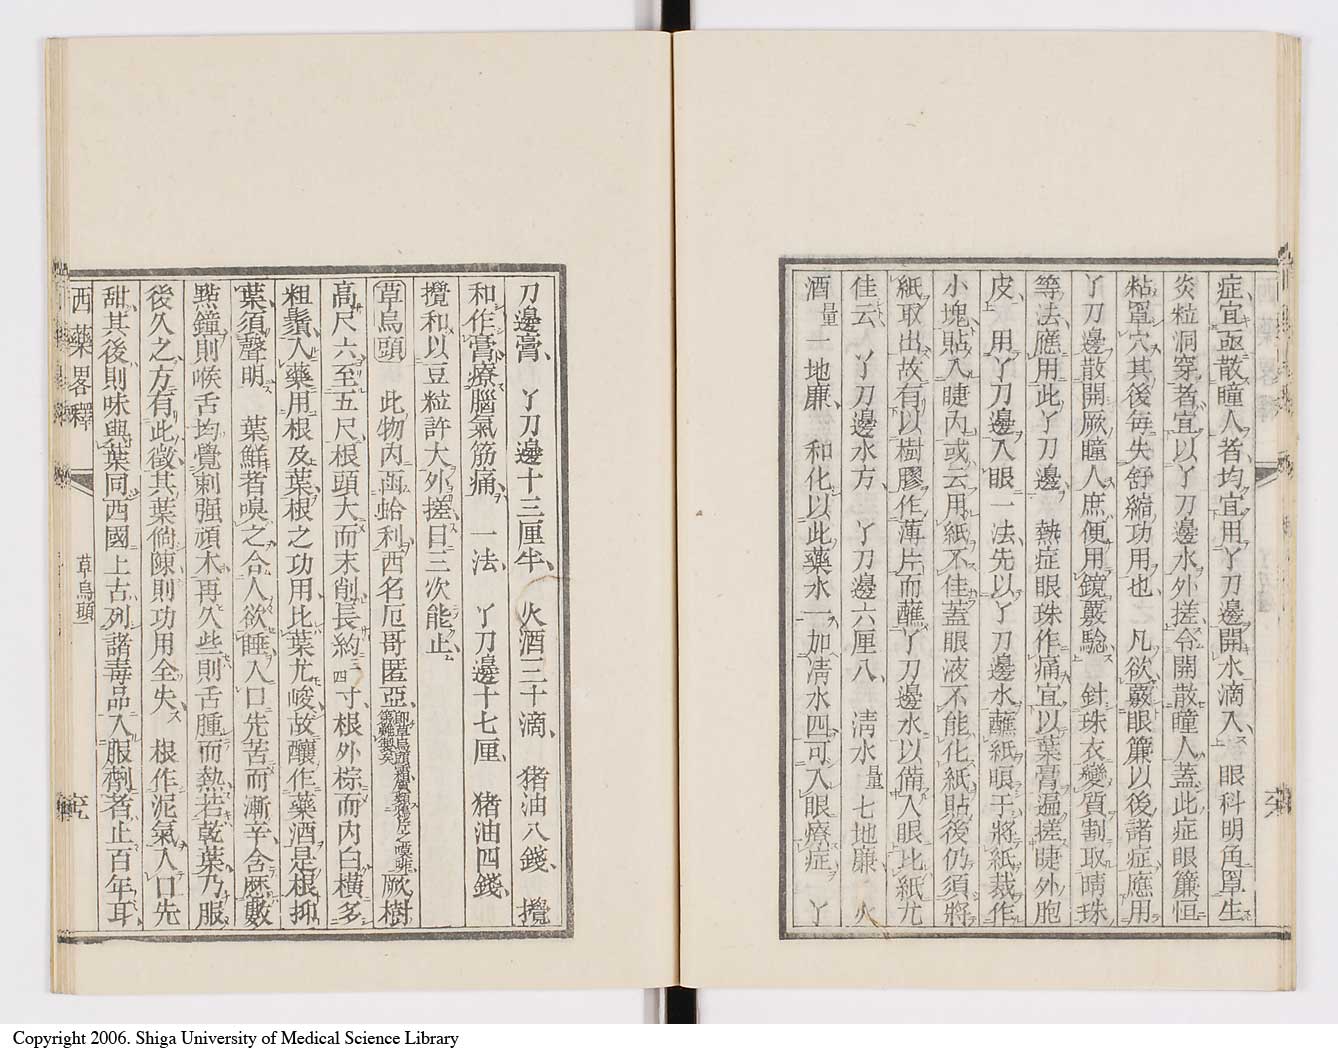 症宜亟散瞳人者均宜用丫刀邊開水滴入 眼科明角罩生
炎粒洞穿者宜以丫刀邊水外搓令開散瞳人蓋此症眼簾恒
粘罩穴其後每失舒縮功用也 凡欲覈眼簾以後諸症應用
丫刀邊散開厥瞳人庶便用鏡覈驗 針珠衣變質割取睛珠
等法應用此丫刀邊 熱症眼珠作痛宜以葉膏遍搓睫外胞
皮 用丫刀邊入眼一法先以丫刀邊水蘸紙晾于將紙裁作
小塊貼入睫內或云用紙不佳蓋眼液不能化紙貼後仍須將
紙取出故有以樹膠作薄片而蘸丫刀邊水以備入眼比紙尤
佳云 丫刀邊水方 丫刀邊六厘八 淸水量七地廉 火
酒量一地廉 和化以此藥水一加淸水四可入眼療症 丫
刀邊膏 丫刀邊十三厘半 火酒三十滴 猪油八錢 攪
和作膏療腦氣筋痛 一法 丫刀邊十七厘 猪油四錢
攪和以豆粒許大外搓日三次能止
草烏頭 此物內函蛤利西名厄哥匿亞 厥樹
高尺六至五尺根頭大而末削長約三四寸根外棕而內白橫多
粗鬚入藥用根及葉根之功用比葉尤峻故釀作藥酒是根抑
葉須聲明 葉鮮者嗅之合人欲睡入口先苦而漸辛含歷數
點鐘則喉舌均覺刺强頑木再久些則舌腫而熱若乾葉乃服
後久之方有此徵其葉倘陳則功用全失 根作泥氣入口先
甜其後則味與葉同西國上古列諸毒品入服劑者止百年耳
西藥畧釋
草烏頭
Copyright 2006. Shiga University of Medical Science Library